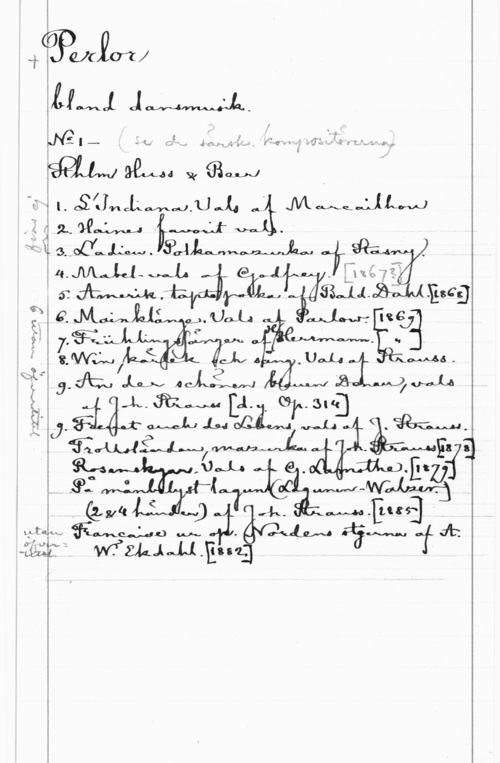 + Perlor
bland dansmusik.
No 1 – (se de särsk. kompositörerna)
Sthlm Huss & Beer
1. L'Indiana. Vals af Marcailhou
2. Haines favorit vals.
3. L'adieu. Polkamazurka af Stasny.
4. Mabel-vals af Godfrey. [1867?]
5. Amerik. taptopolka af Bald. Dahl. [1868]
6. Mainklänge. Vals af Parlow. [1869]
7. Frühlingssänger af Herrmann. [ " ]
8. Win, kärlek och sång. Vals af Strauss.
9. An der schönen blauen Donau, vals
af Joh. Strauss [d.y. Op. 314]
9. Freuet euch des Lebens, vals af J. Strauss.
Trollsländan, mazurka af Joh. Strauss [1878]
Rosenskyar. Vals af G. Lamothe. [1879]
På månbelyst lagun (Lagunen-Walzer.)
(2 & 4 händer) af Joh. Strauss. [1885]
Francaise ur opt. Nordens stjerna af A.
W. Ekdahl. [1882.]
6 utan öfvertitel
utan
öfver=
titel